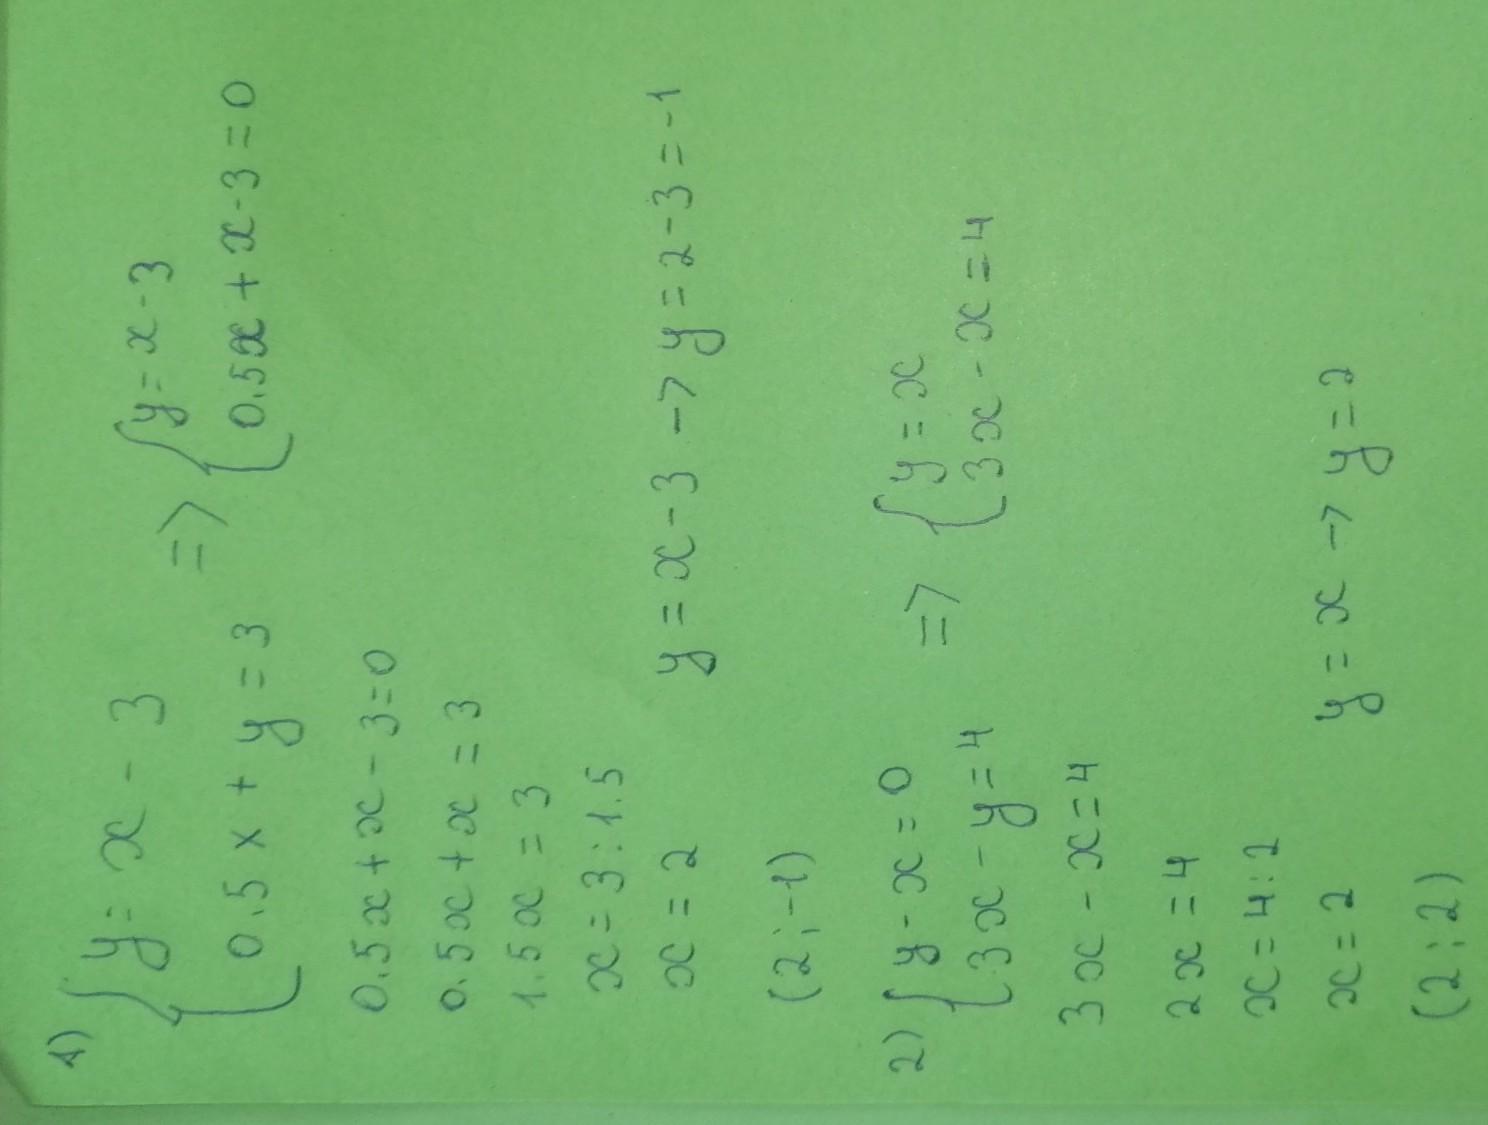 1) { y = x - 3
0.5 x + y = 3 => { y = x - 3
0.5x + x - 3 = 0
0.5x + x - 3 = 0
0.5x + x = 3
1.5x = 3
x = 3 : 1.5
x = 2 y = x - 3 -> y = 2 - 3 = -1
(2 ; -1)
2) { y - x = 0
3x - y = 4 => { y = x
3x - x = 4
3x - x = 4
2x = 4
x = 4 : 2
x = 2 y = x -> y = 2
(2 ; 2)